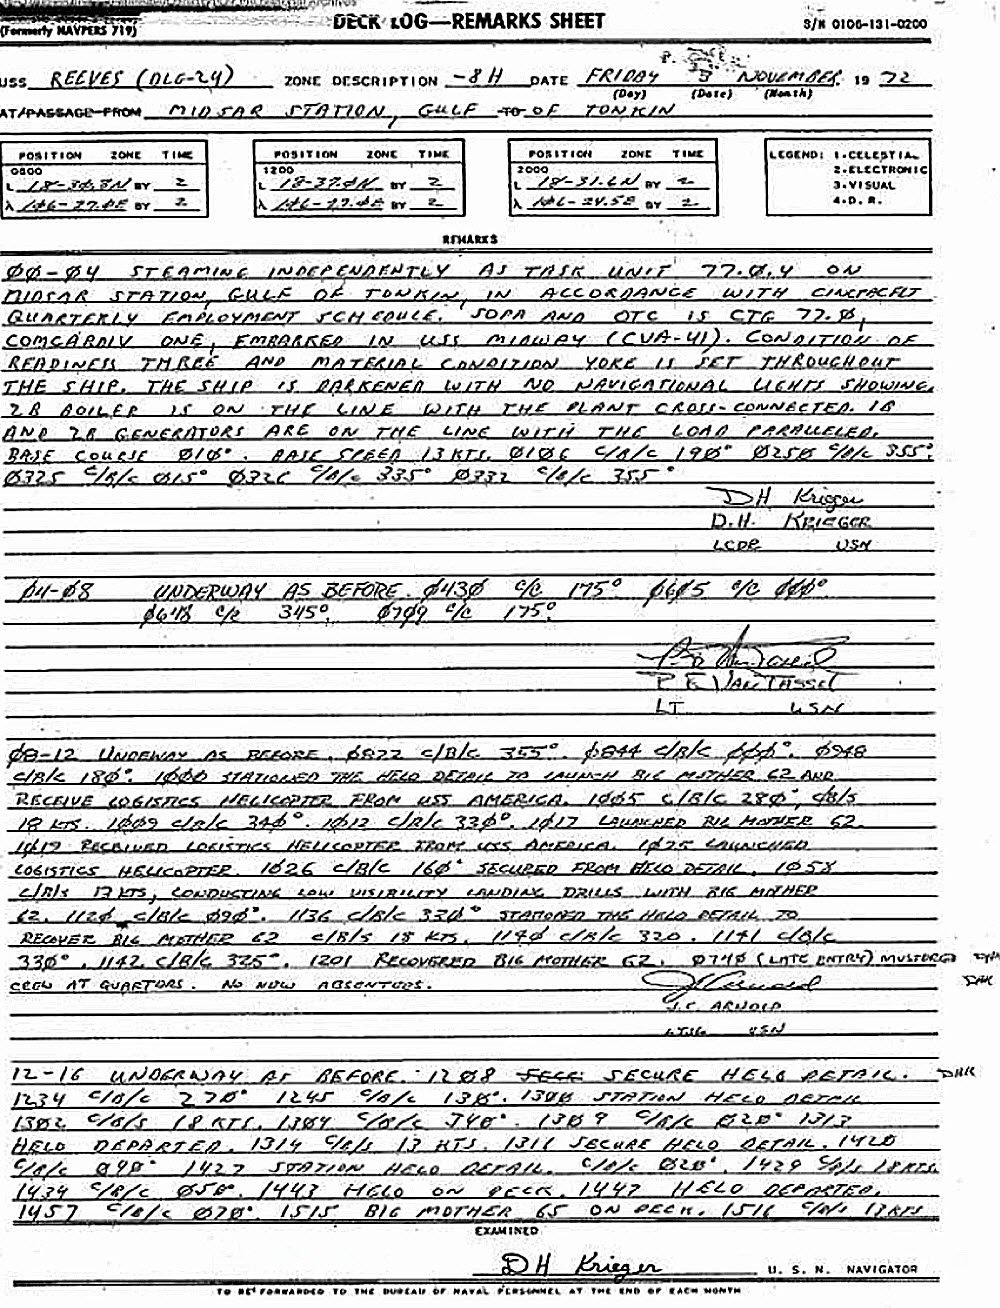 (Formerly NAVPERS 719)
DECK LOG—REMARKS SHEET
S/N 0106-131-0200
USS REEVES (DLG-24) ZONE DESCRIPTION -8H DATE FRIDAY 3 NOVEMBER 19 72
(Day) (Date) (Month)
AT/PASSAGE FROM MIDSAR STATION, GULF TO OF TONKIN
POSITION ZONE TIME
0800
L 18-30.8N BY 2
λ 106-27.0E BY 2
POSITION ZONE TIME
1200
L 18-37.0N BY 2
λ 106-27.0E BY 2
POSITION ZONE TIME
2000
L 18-31.6N BY 2
λ 106-24.5E BY 2
LEGEND: 1-CELESTIAL
2-ELECTRONIC
3-VISUAL
4-D. R.
REMARKS
00-04 STEAMING INDEPENDENTLY AS TASK UNIT 77.0.4 ON
MIDSAR STATION, GULF OF TONKIN, IN ACCORDANCE WITH CINCPACFLT
QUARTERLY EMPLOYMENT SCHEDULE. SOPA AND OTC IS CTG 77.0,
COMCARDIV ONE, EMBARKED IN USS MIDWAY (CVA-41). CONDITION OF
READINESS THREE AND MATERIAL CONDITION YOKE IS SET THROUGHOUT
THE SHIP. THE SHIP IS DARKENED WITH NO NAVIGATIONAL LIGHTS SHOWING.
2B BOILER IS ON THE LINE WITH THE PLANT CROSS-CONNECTED. 1B
AND 2B GENERATORS ARE ON THE LINE WITH THE LOAD PARALLELED.
BASE COURSE 010°. BASE SPEED 13 KTS. 0106 C/B/C 190° 0250 C/B/C 355°.
0325 C/B/C 015° 0326 C/B/C 335° 0332 C/B/C 355°
DH Krieger
D.H. KRIEGER
LCDR USN
04-08 UNDERWAY AS BEFORE. 0430 C/C 175° 0605 C/C 000°
0648 C/C 345°. 0709 C/C 175°.
P E VANTASSEL
LT USN
08-12 UNDEWAY AS BEFORE. 0822 C/B/C 355°. 0844 C/B/C 000°. 0948
C/B/C 180°. 1000 STATIONED THE HELO DETAIL TO LAUNCH BIG MOTHER 62 AND
RECEIVE LOGISTICS HELICOPTER FROM USS AMERICA. 1005 C/B/C 280°, C/B/S
18 KTS. 1009 C/B/C 340°. 1012 C/B/C 330°. 1017 LAUNCHED BIG MOTHER 62.
1019 RECEIVED LOGISTICS HELICOPTER FROM USS AMERICA. 1025 LAUNCHED
LOGISTICS HELICOPTER. 1026 C/B/C 160° SECURED FROM HELO DETAIL. 1058
C/B/S 13 KTS, CONDUCTING LOW VISIBILITY LANDING DRILLS WITH BIG MOTHER
62. 1120 C/B/C 090°. 1136 C/B/C 330° STATIONED THE HELO DETAIL TO
RECOVER BIG MOTHER 62 C/B/S 18 KTS. 1140 C/B/C 320. 1141 C/B/C
330°. 1142 C/B/C 325°. 1201 RECOVERED BIG MOTHER 62. 0740 (LATE ENTRY) MUSTERED
CREW AT QUARTORS. NO NEW ABSENTEES.
J.C. ARNOLD
LTJG USN
12-16 UNDERWAY AS BEFORE. 1208 SECURE HELO DETAIL. DHK
1234 C/B/C 270° 1245 C/B/C 130°. 1300 STATION HELO DETAIL
1302 C/B/S 18 KTS. 1304 C/B/C 340°. 1309 C/B/C 020° 1313
HELO DEPARTED. 1314 C/B/S 13 KTS. 1311 SECURE HELO DETAIL. 1420
C/B/C 090° 1427 STATION HELO DETAIL. C/B/C 020°. 1429 C/B/S 18 KTS
1434 C/B/C 050°. 1443 HELO ON DECK. 1447 HELO DEPARTED.
1457 C/B/C 070°. 1515 BIG MOTHER 65 ON DECK. 1516 C/B/S 13 KTS
EXAMINED
DH Krieger U. S. N. NAVIGATOR
TO BE FORWARDED TO THE BUREAU OF NAVAL PERSONNEL AT THE END OF EACH MONTH